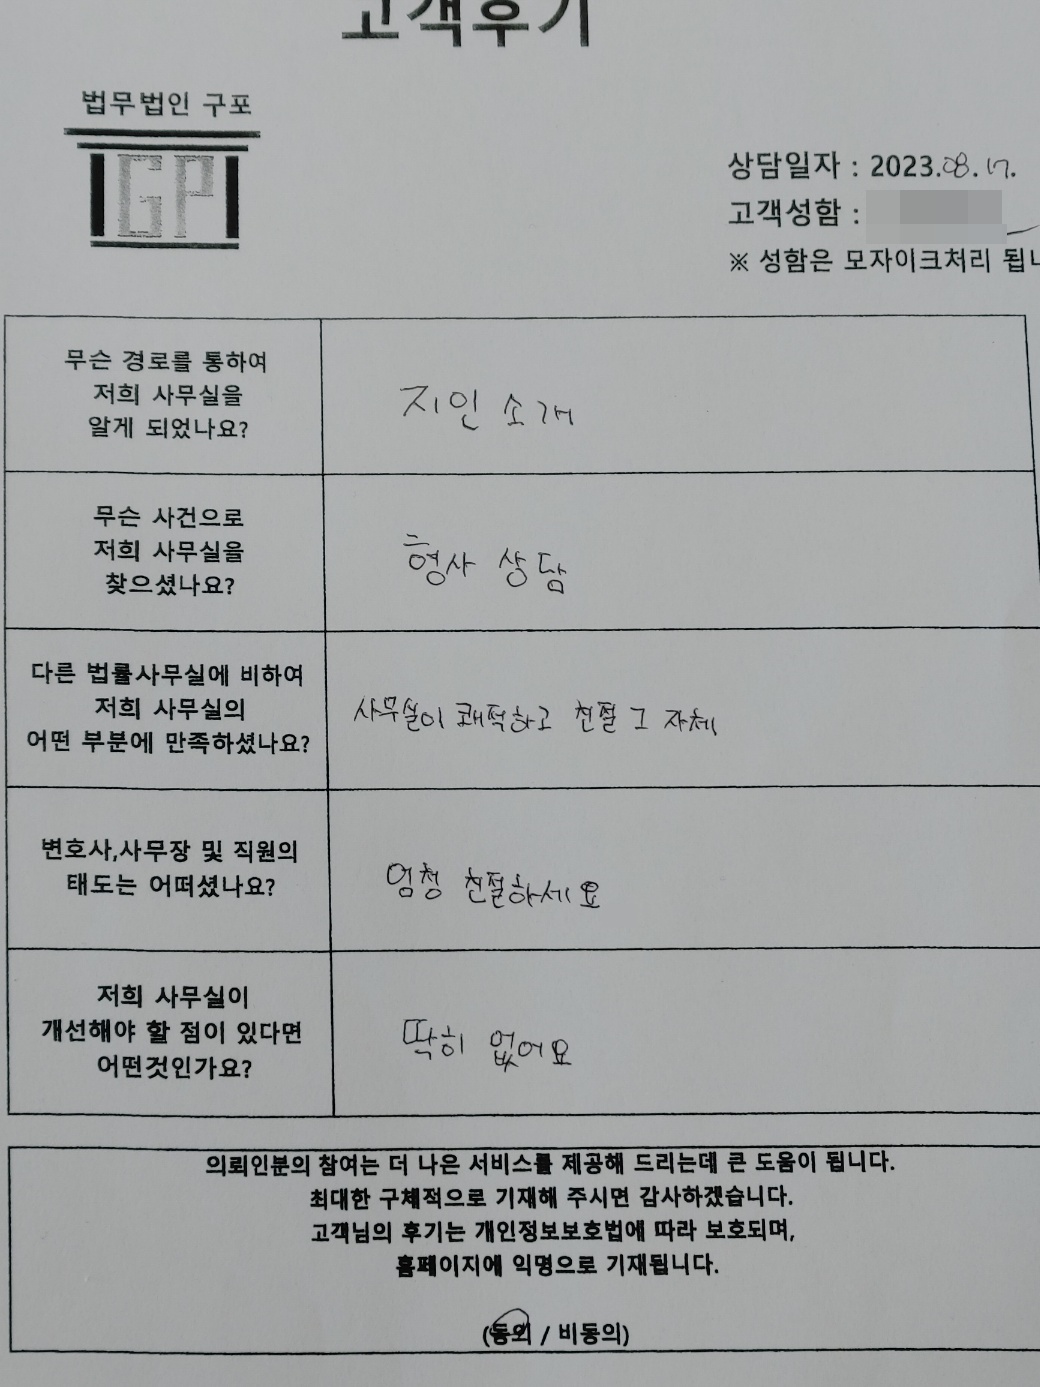 고객후기
법무법인 구포
GP
상담일자 : 2023.08.17.
고객성함 :
※ 성함은 모자이크처리 됩니
무슨 경로를 통하여
저희 사무실을
알게 되었나요?
지인 소개
무슨 사건으로
저희 사무실을
찾으셨나요?
형사 상담
다른 법률사무실에 비하여
저희 사무실의
어떤 부분에 만족하셨나요?
사무실이 쾌적하고 친절 그 자체
변호사,사무장 및 직원의
태도는 어떠셨나요?
엄청 친절하세요
저희 사무실이
개선해야 할 점이 있다면
어떤것인가요?
딱히 없어요
의뢰인분의 참여는 더 나은 서비스를 제공해 드리는데 큰 도움이 됩니다.
최대한 구체적으로 기재해 주시면 감사하겠습니다.
고객님의 후기는 개인정보보호법에 따라 보호되며,
홈페이지에 익명으로 기재됩니다.
(동의 / 비동의)